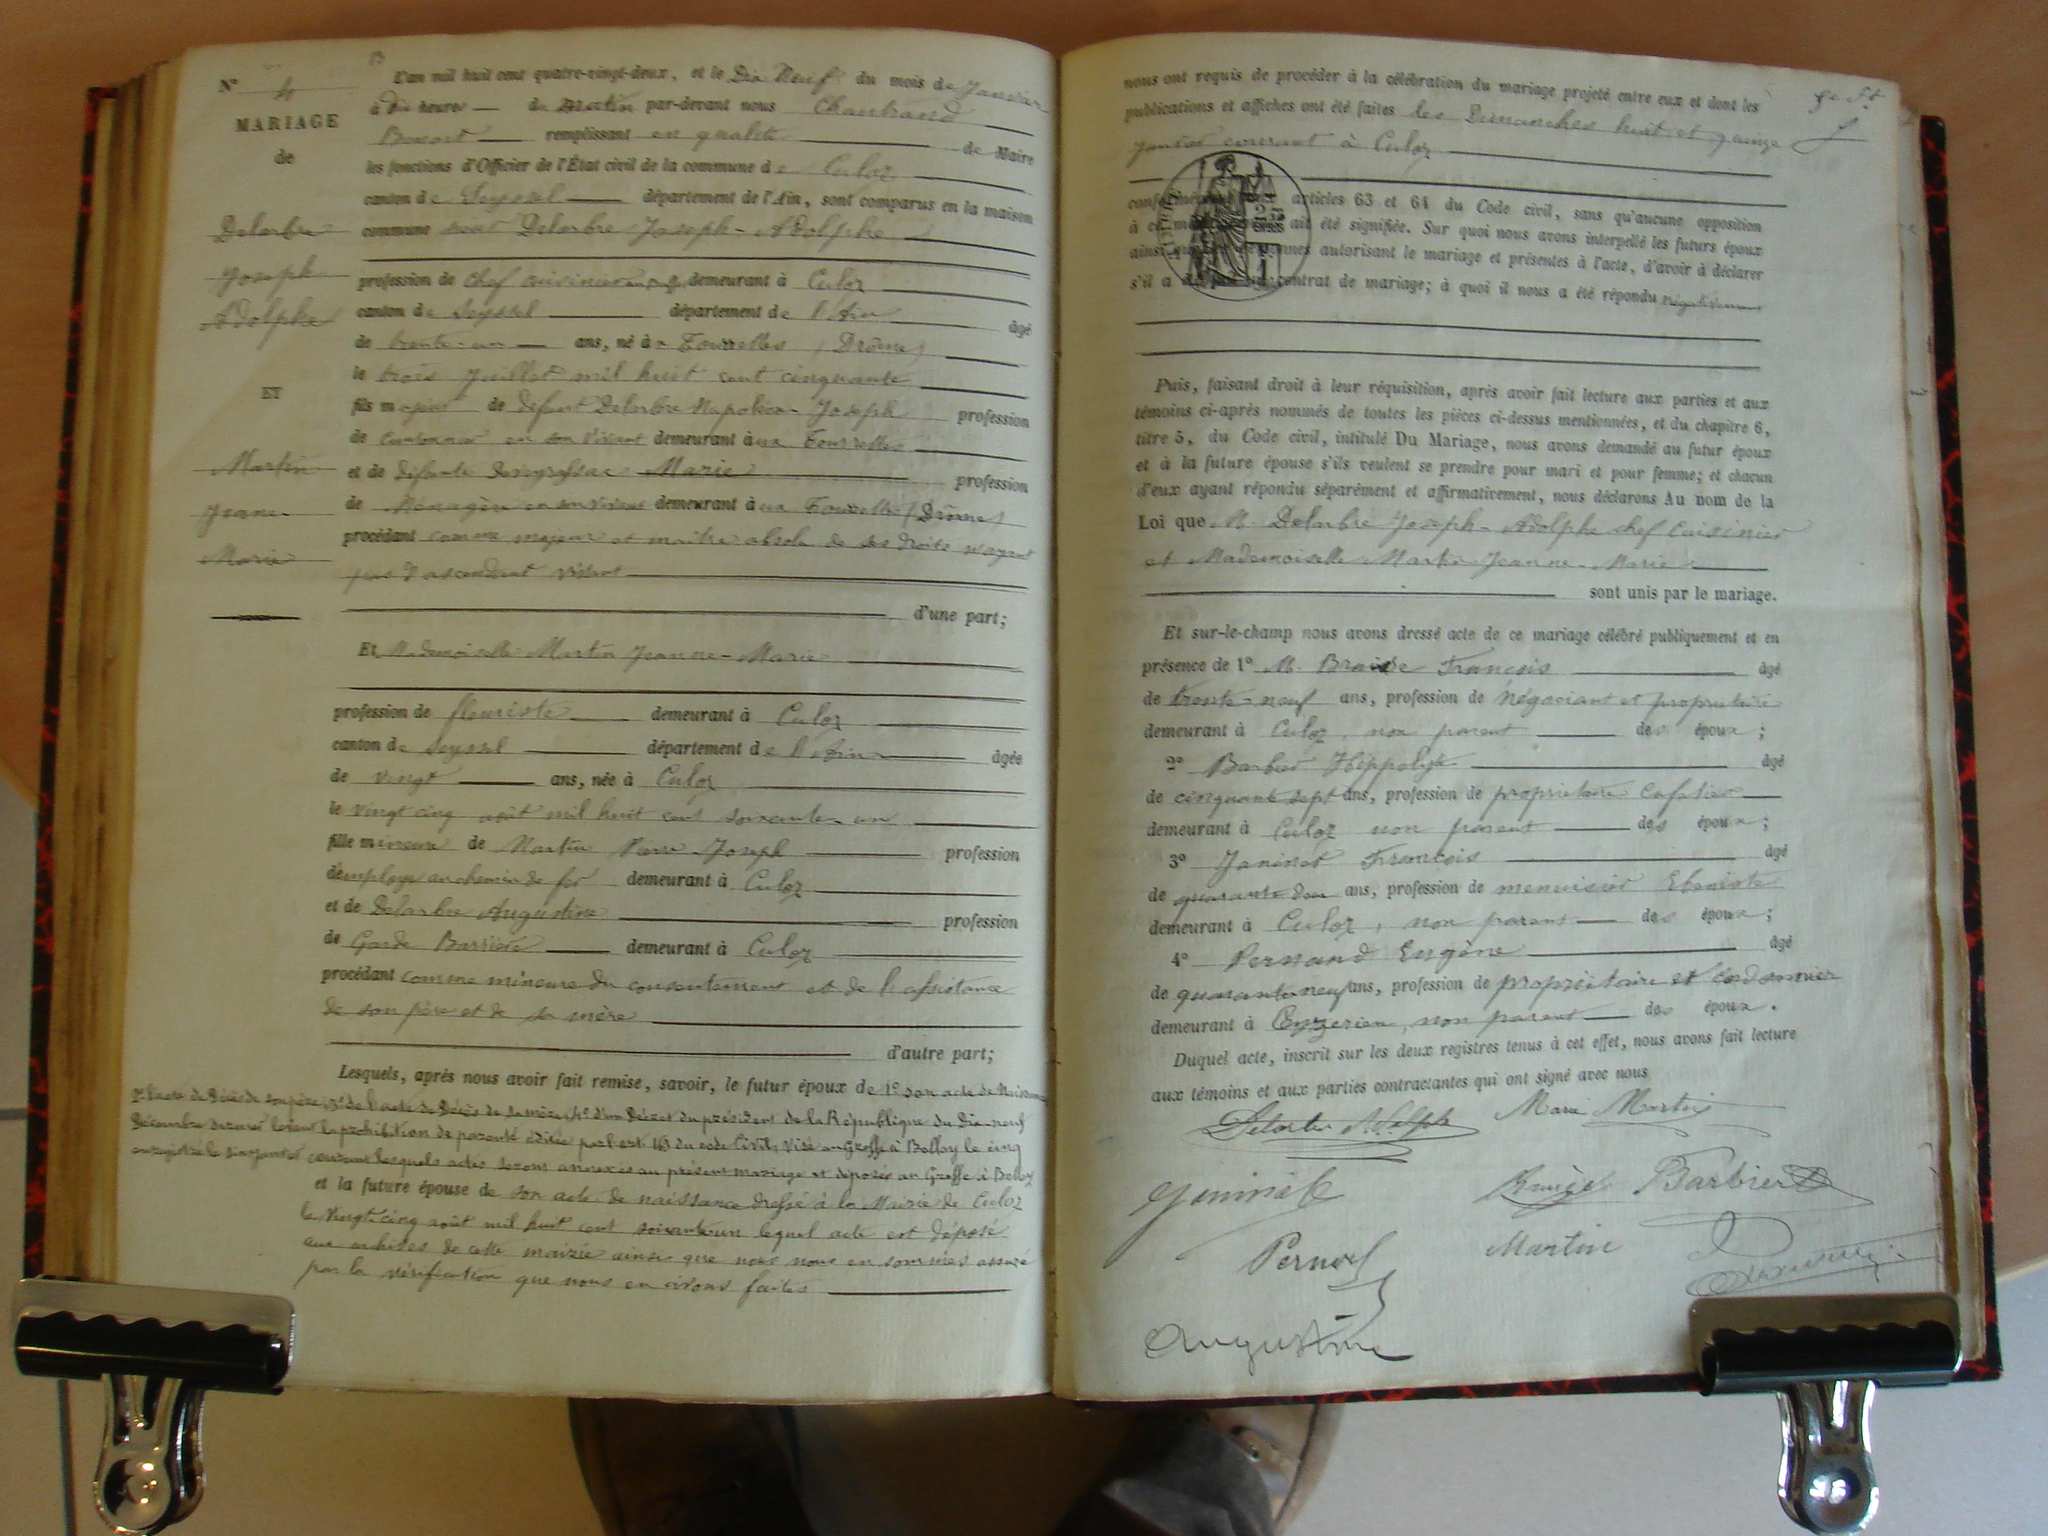 N° 4
MARIAGE
de
Delarbre
Joseph
Adolphe
ET
Martin
Jeanne
Marie
L'an mil huit cent quatre-vingt-deux, et le Dix Neuf du mois de Janvier
à dix heures de matin par-devant nous Chantrand
Benoit remplissant en qualité de Maire
les fonctions d'Officier de l'État civil de la commune de Culoz
canton de Seyssel département de l'Ain, sont comparus en la maison
commune Delarbre Joseph-Adolphe
profession de chef cuisinier demeurant à Culoz
canton de Seyssel département de l'Ain âgé
de trente-un ans, né à Tourrelles (Drôme)
le trois Juillet mil huit cent cinquante
fils majeur de défunt Delarbre Napoléon-Joseph profession
de cantonnier en son vivant demeurant à Tourrelles
et de défunte Marie profession
de Ménagère en son vivant demeurant à Tourrelles (Drôme)
procédant comme majeur et maître absolu de ses droits n'ayant
pas d'ascendant vivant
d'une part;
Et Mademoiselle Martin Jeanne-Marie
profession de fleuriste demeurant à Culoz
canton de Seyssel département de l'Ain âgée
de vingt ans, née à Culoz
le vingt cinq août mil huit cent soixante-un
fille mineure de Martin Pierre Joseph profession
d'employé au chemin de fer demeurant à Culoz
et de Delarbre Augustine profession
de Garde Barrière demeurant à Culoz
procédant comme mineure du consentement et de l'assistance
de son père et de sa mère
d'autre part;
Lesquels, après nous avoir fait remise, savoir, le futur époux de 1° son acte de Naissance
2° l'acte de Décès de son père, 3° de l'acte de Décès de sa mère, 4° d'un Décret du président de la République du Dix neuf
Décembre dernier levant la prohibition de parenté édictée par l'art. 163 du code Civil, Visé au Greffe à Belley le cinq
enregistré le six janvier courant lesquels actes seront annexés au présent mariage et déposés au Greffe à Belley
et la future épouse de son acte de naissance dressé à la Mairie de Culoz
le vingt-cinq août mil huit cent soixante-un lequel acte est déposé
aux archives de cette mairie ainsi que nous nous en sommes assuré
par la vérification que nous en avons faites
nous ont requis de procéder à la célébration du mariage projeté entre eux et dont les
publications et affiches ont été faites les Dimanches huit et quinze
janvier courant à Culoz
articles 63 et 64 du Code civil, sans qu'aucune opposition
à ce ait été signifiée. Sur quoi nous avons interpellé les futurs époux
ainsi autorisant le mariage et présentes à l'acte, d'avoir à déclarer
s'il a contrat de mariage; à quoi il nous a été répondu négativement
Puis, faisant droit à leur réquisition, après avoir fait lecture aux parties et aux
témoins ci-après nommés de toutes les pièces ci-dessus mentionnées, et du chapitre 6,
titre 5, du Code civil, intitulé Du Mariage, nous avons demandé au futur époux
et à la future épouse s'ils veulent se prendre pour mari et pour femme; et chacun
d'eux ayant répondu séparément et affirmativement, nous déclarons Au nom de la
Loi que M. Delarbre Joseph-Adolphe chef cuisinier
et Mademoiselle Martin Jeanne-Marie
sont unis par le mariage.
Et sur-le-champ nous avons dressé acte de ce mariage célébré publiquement et en
présence de 1° M. François âgé
de trente-neuf ans, profession de Négociant et propriétaire
demeurant à Culoz, non parent des époux;
2° Barbier Hippolyte âgé
de cinquante sept ans, profession de propriétaire Cafetier
demeurant à Culoz non parent des époux;
3° Janinet François âgé
de quarante deux ans, profession de menuisier Ebéniste
demeurant à Culoz, non parent des époux;
4° Pernand Eugène âgé
de quarante neuf ans, profession de propriétaire et cordonnier
demeurant à Ceyzerieu, non parent des époux.
Duquel acte, inscrit sur les deux registres tenus à cet effet, nous avons fait lecture
aux témoins et aux parties contractantes qui ont signé avec nous
Delarbre Adolph Marie Martin
Barbier
Martin
Augustine